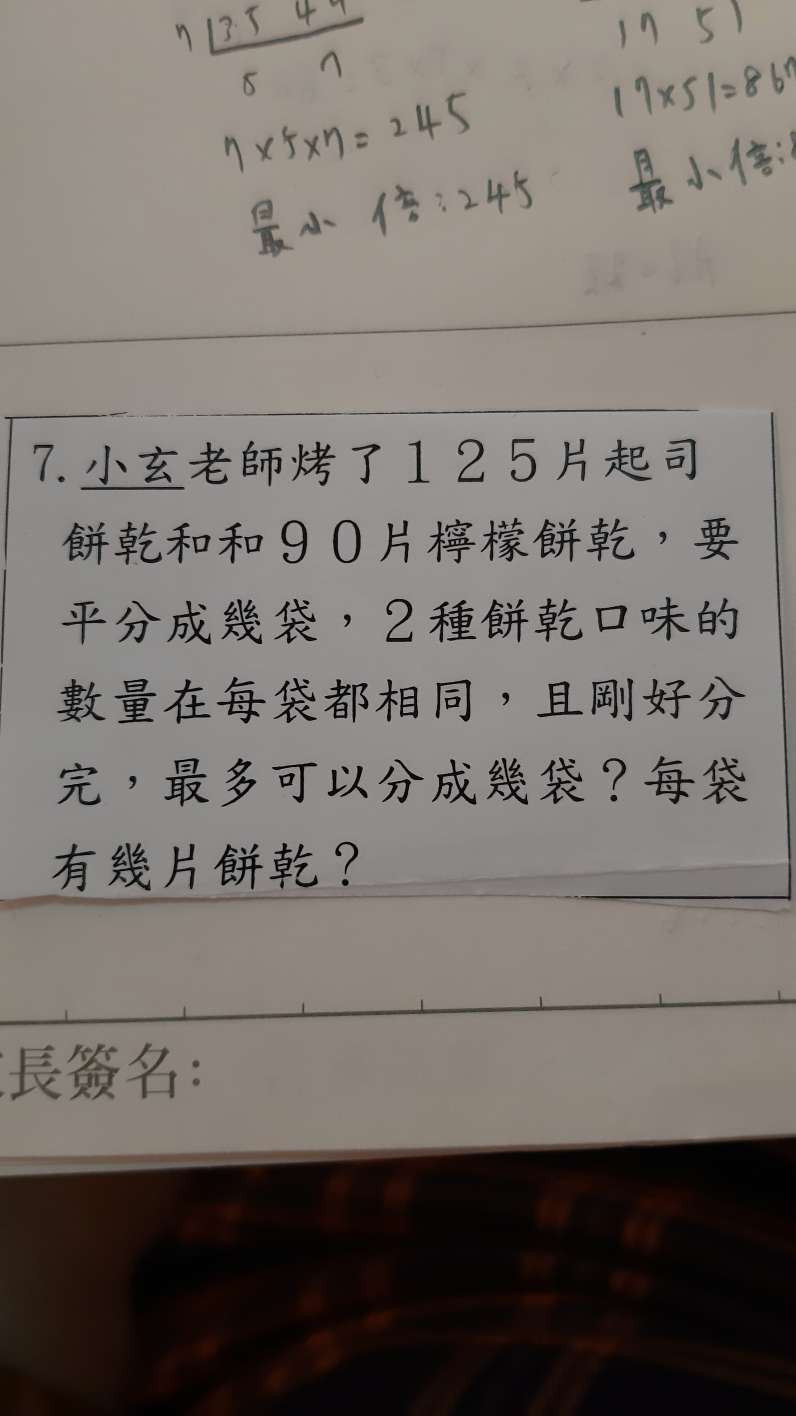 7 35 49
5 7
7×5×7=245
最小倍:245
17 51
17×51=867
最小倍:
7.小玄老師烤了125片起司
餅乾和和90片檸檬餅乾，要
平分成幾袋，2種餅乾口味的
數量在每袋都相同，且剛好分
完，最多可以分成幾袋？每袋
有幾片餅乾？
長簽名: